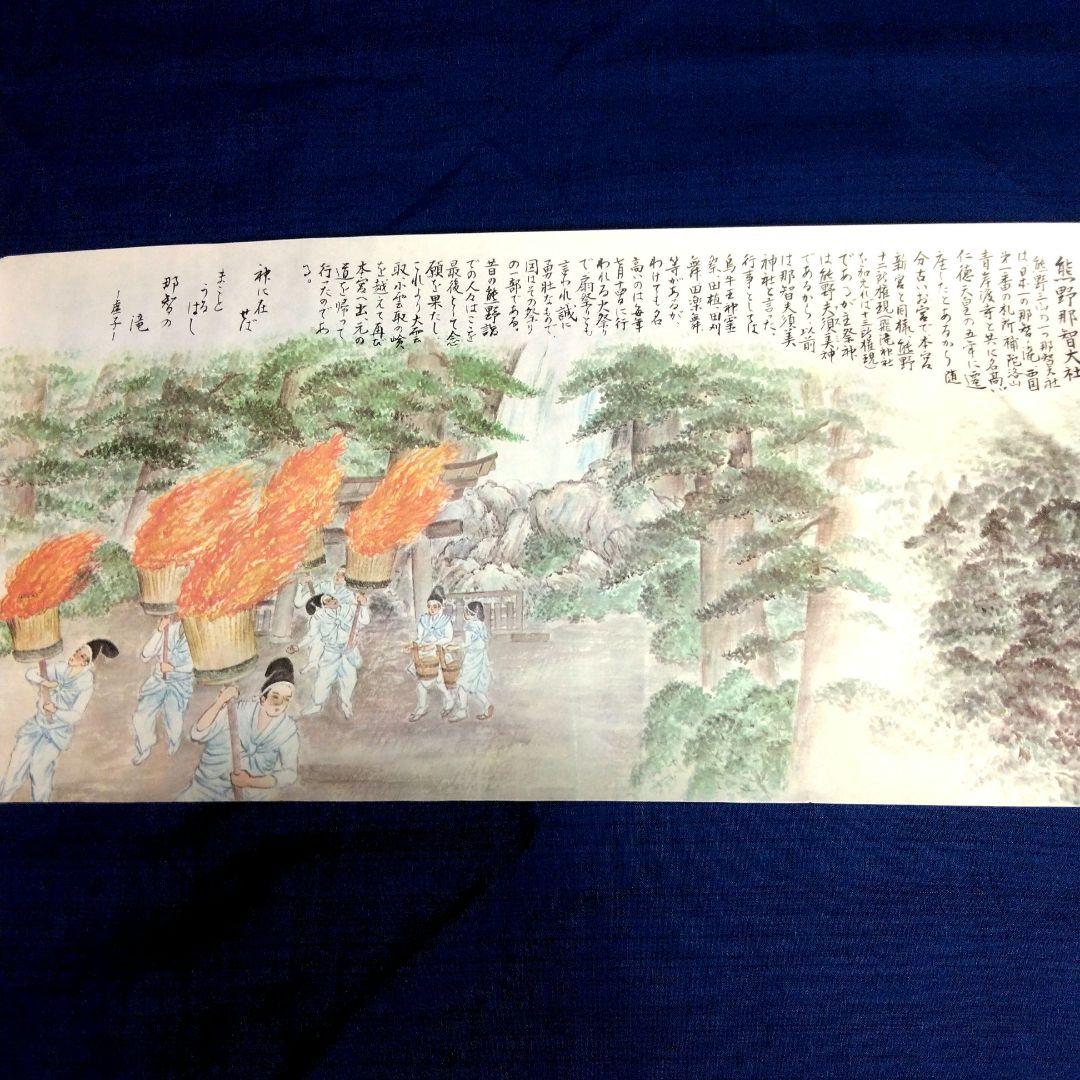 熊野那智大社
熊野三山の一つ那智大社
は日本一の那智の滝、西国
第一番の札所補陀洛山
青岸渡寺と共に名高い
仁徳天皇の五年に遷
座したとあるから随
分古いお宮で本宮
新宮と同様、熊野
十二所権現飛滝神社
を加えれば十三所権現)
であるが主祭神
は熊野夫須美神
であるから以前
は那智夫須美
神社と言った、
行事としては
烏牛王神璽
祭田植田刈
舞田楽舞
等があるが、
わけても名
高いのは毎年
七月十四日に行
われる火祭り
で扇祭りとも
言われ誠に
勇壮なもので
図はその祭り
の一部である、
昔の熊野詣
での人々はここを
最後として念
願を果たし、
これより大雲
取小雲取の嶮
を越えて再び
本宮へ出、元の
道を帰って
行ったのであ
る。
神に在
せば
まこと
うるはし
那智の
滝
ー虚子ー